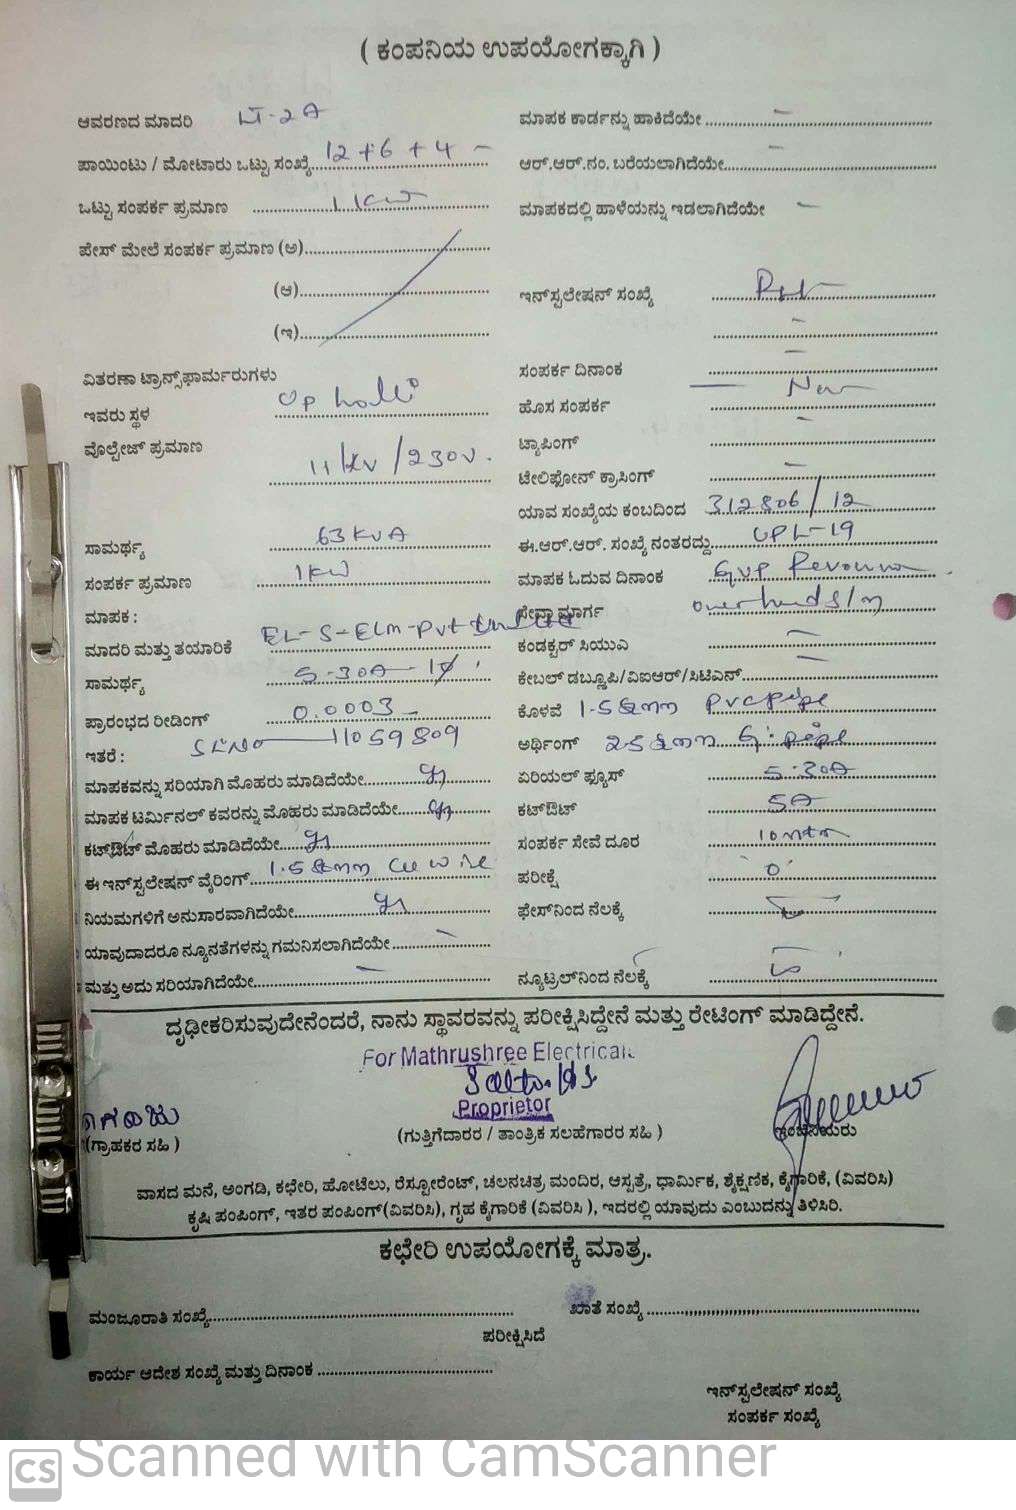 ( ಕಂಪನಿಯ ಉಪಯೋಗಕ್ಕಾಗಿ )
ಆವರಣದ ಮಾದರಿ LT-2A
ಪಾಯಿಂಟು / ಮೋಟಾರು ಒಟ್ಟು ಸಂಖ್ಯೆ 12+6+4 -
ಒಟ್ಟು ಸಂಪರ್ಕ ಪ್ರಮಾಣ 1 KW
ಪೇಸ್ ಮೇಲೆ ಸಂಪರ್ಕ ಪ್ರಮಾಣ (ಅ)
(ಆ)
(ಇ)
ವಿತರಣಾ ಟ್ರಾನ್ಸ್‌ಫಾರ್ಮರುಗಳು
ಇವರು ಸ್ಥಳ Up halli
ವೊಲ್ಟೇಜ್ ಪ್ರಮಾಣ 11 KV / 230V.
ಸಾಮರ್ಥ್ಯ 63 KVA
ಸಂಪರ್ಕ ಪ್ರಮಾಣ 1KW
ಮಾಪಕ :
ಮಾದರಿ ಮತ್ತು ತಯಾರಿಕೆ EL-S-Elm-Pvt
ಸಾಮರ್ಥ್ಯ 5-30A-1ϕ
ಪ್ರಾರಂಭದ ರೀಡಿಂಗ್ 0.0003
ಇತರೆ : SL NO 11059809
ಮಾಪಕವನ್ನು ಸರಿಯಾಗಿ ಮೊಹರು ಮಾಡಿದೆಯೇ
ಮಾಪಕ ಟರ್ಮಿನಲ್ ಕವರನ್ನು ಮೊಹರು ಮಾಡಿದೆಯೇ
ಕಟ್‌ಔಟ್ ಮೊಹರು ಮಾಡಿದೆಯೇ
ಈ ಇನ್‌ಸ್ಟಲೇಷನ್ ವೈರಿಂಗ್ 1.5 Sqmm Cu wire
ನಿಯಮಗಳಿಗೆ ಅನುಸಾರವಾಗಿದೆಯೇ
ಯಾವುದಾದರೂ ನ್ಯೂನತೆಗಳನ್ನು ಗಮನಿಸಲಾಗಿದೆಯೇ -
ಮತ್ತು ಅದು ಸರಿಯಾಗಿದೆಯೇ -
ಮಾಪಕ ಕಾರ್ಡನ್ನು ಹಾಕಿದೆಯೇ -
ಆರ್.ಆರ್.ನಂ. ಬರೆಯಲಾಗಿದೆಯೇ -
ಮಾಪಕದಲ್ಲಿ ಹಾಳೆಯನ್ನು ಇಡಲಾಗಿದೆಯೇ -
ಇನ್‌ಸ್ಟಲೇಷನ್ ಸಂಖ್ಯೆ
ಸಂಪರ್ಕ ದಿನಾಂಕ -
ಹೊಸ ಸಂಪರ್ಕ New
ಟ್ಯಾಪಿಂಗ್ -
ಟೇಲಿಫೋನ್ ಕ್ರಾಸಿಂಗ್ -
ಯಾವ ಸಂಖ್ಯೆಯ ಕಂಬದಿಂದ 312806/12
ಈ.ಆರ್.ಆರ್. ಸಂಖ್ಯೆ ನಂತರದ್ದು UPL-19
ಮಾಪಕ ಓದುವ ದಿನಾಂಕ GVP
ಸೇವಾ ಮಾರ್ಗ overhead
ಕಂಡಕ್ಟರ್ ಸಿಯುಎ -
ಕೇಬಲ್ ಡಬ್ಲೂಪಿ/ವಿಐಆರ್/ಸಿಟಿಎನ್ -
ಕೊಳವೆ 1.5 Sqmm Pvc pipe
ಅರ್ಥಿಂಗ್ 25 Sqmm G. pipe
ಏರಿಯಲ್ ಫ್ಯೂಸ್ 5-30A
ಕಟ್‌ಔಟ್ 5A
ಸಂಪರ್ಕ ಸೇವೆ ದೂರ 10 mtr
ಪರೀಕ್ಷೆ '0'
ಫೇಸ್‌ನಿಂದ ನೆಲಕ್ಕೆ
ನ್ಯೂಟ್ರಲ್‌ನಿಂದ ನೆಲಕ್ಕೆ
ದೃಢೀಕರಿಸುವುದೇನೆಂದರೆ, ನಾನು ಸ್ಥಾವರವನ್ನು ಪರೀಕ್ಷಿಸಿದ್ದೇನೆ ಮತ್ತು ರೇಟಿಂಗ್ ಮಾಡಿದ್ದೇನೆ.
For Mathrushree Electricals
Proprietor
(ಗ್ರಾಹಕರ ಸಹಿ )
(ಗುತ್ತಿಗೆದಾರರ / ತಾಂತ್ರಿಕ ಸಲಹೆಗಾರರ ಸಹಿ )
ಇಂಜಿನಿಯರು
ವಾಸದ ಮನೆ, ಅಂಗಡಿ, ಕಛೇರಿ, ಹೋಟೆಲು, ರೆಸ್ಟೋರೆಂಟ್, ಚಲನಚಿತ್ರ ಮಂದಿರ, ಆಸ್ಪತ್ರೆ, ಧಾರ್ಮಿಕ, ಶೈಕ್ಷಣಿಕ, ಕೈಗಾರಿಕೆ, (ವಿವರಿಸಿ)
ಕೃಷಿ ಪಂಪಿಂಗ್, ಇತರ ಪಂಪಿಂಗ್(ವಿವರಿಸಿ), ಗೃಹ ಕೈಗಾರಿಕೆ (ವಿವರಿಸಿ ), ಇದರಲ್ಲಿ ಯಾವುದು ಎಂಬುದನ್ನು ತಿಳಿಸಿರಿ.
ಕಛೇರಿ ಉಪಯೋಗಕ್ಕೆ ಮಾತ್ರ.
ಮಂಜೂರಾತಿ ಸಂಖ್ಯೆ
ಖಾತೆ ಸಂಖ್ಯೆ
ಪರೀಕ್ಷಿಸಿದೆ
ಕಾರ್ಯ ಆದೇಶ ಸಂಖ್ಯೆ ಮತ್ತು ದಿನಾಂಕ
ಇನ್‌ಸ್ಟಲೇಷನ್ ಸಂಖ್ಯೆ
ಸಂಪರ್ಕ ಸಂಖ್ಯೆ
CS Scanned with CamScanner